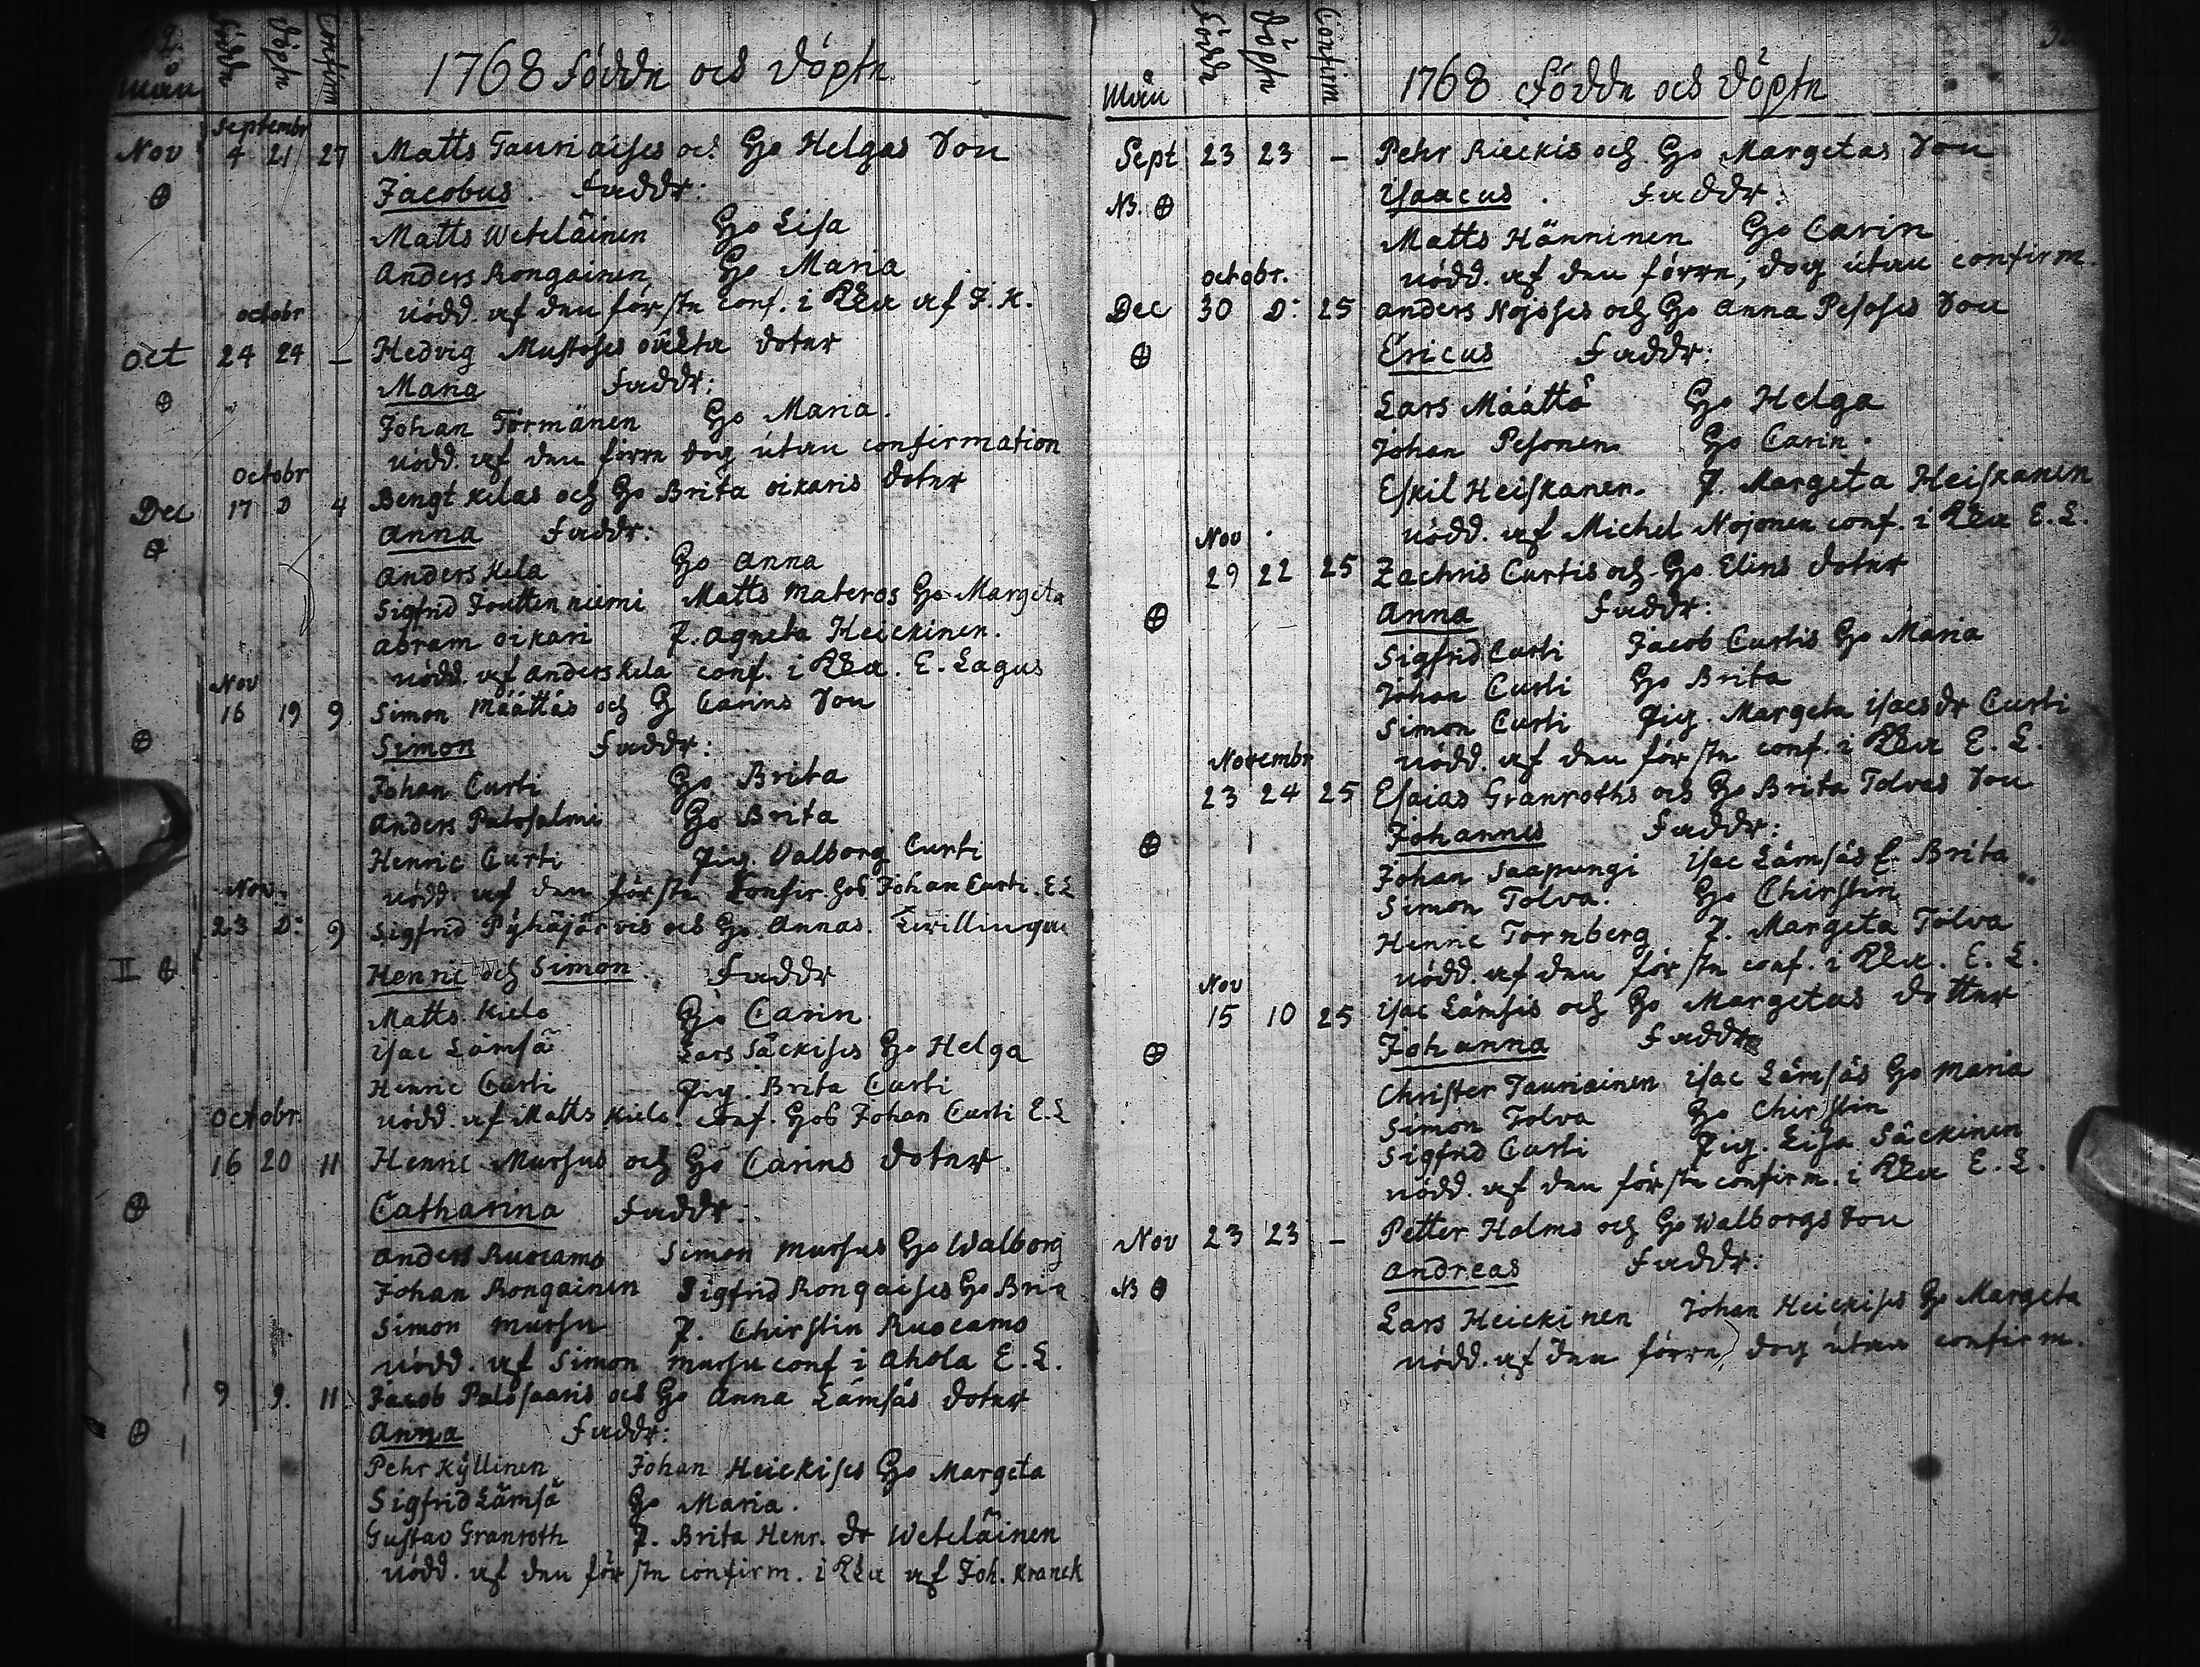 Mån Födde Döpte Confirm 1768 Födde och Döpte
Septembr
Nov 4 21 27 Matts Tauriaises och Ho Helgas Son
Jacobus. Faddr:
Matts Weteläinen Ho Lisa
Anders Rongainen Ho Maria
nödd. af den förste conf. i Kka af J. K.
octobr
oct 24 24 - Hedvig Mustoses oäkta doter
Maria Faddr:
Johan Törmänen Ho Maria.
nödd. af den förre dog utan confirmation
Octobr
Dec 17 D 4 Bengt Kelas och Ho Brita oikaris doter
Anna Faddr:
Anders Kela Ho Anna
Sigfrid Jouttenniemi Matts Materos Ho Margeta
Abram oikari P. Agneta Heickinen.
nödd. af Anders Kela conf. i Kka. E. Lagus
Nov
16 19 9 Simon Määttäs och H Carins Son
Simon Faddr:
Johan Curti Ho Brita
Anders Palosalmi Ho Brita
Henric Curti Pig. Valborg Curti
nödd. af den förste Confir. hos Johan Curti. E L
Nov.
23 D: 9 Sigfrid Pyhäjärvis och Ho Annas. Tvillingar
II Henric och Simon. Faddr
Matts Kielo Ho Carin
Isac Lämsä Lars Säckises Ho Helga
Henric Curti Pig. Brita Curti
nödd. af Matts Kielo. conf. Hos Johan Curti E. L
Octobr.
16 20 11 Henric Mursus och Ho Carins doter.
Catharina Faddr:
Anders Ruocamo Simon Mursus Ho Walborg
Johan Rongainen Sigfrid Rongaises Ho Brita
Simon Mursu P. Chirstin Ruocamo
nödd. af Simon Mursu conf i Ahola E. L.
9 9. 11. Jacob Palosaaris och Ho Anna Lämsäs doter
Anna Faddr:
Pehr Kyllinen Johan Heickises Ho Margeta
Sigfrid Lämsä Ho Maria.
Gustav Granroth P. Brita Henr. dr Weteläinen
nödd. af den förste confirm. i Kka af Joh. Kranck
Mån Födde Döpte Confirm 1768 Födde och Döpte
Sept 23 23 - Pehr Rieckis och Ho Margetas Son
NB. Isaacus. Faddr:
Matts Hänninen Ho Carin
nödd. af den förre, dog utan confirm.
octobr.
Dec 30 D: 25 Anders Nojoses och Ho Anna Pesoses Son
Ericus Faddr:
Lars Määttä Ho Helga
Johan Pesonen Ho Carin.
Eskil Heiskanen. P. Margeta Heiskanen
nödd. af Michel Nojonen conf. i Kka E. L.
Nov
29 22 25 Zachris Curtis och Ho Elins doter
Anna Faddr:
Sigfrid Curti Jacob Curtis Ho Maria
Johan Curti Ho Brita
Simon Curti Pig. Margeta Isacs dr Curti
nödd. af den förste conf. i Kka E. L.
Novembr
23 24 25 Esaias Granroths och Ho Brita Tolvas Son
Johannes Faddr:
Johan Saapungi Isac Lämsäs E. Brita
Simon Tolva. Ho Chirstin
Henric Tornberg P. Margeta Tolva
nödd. af den förste conf. i Kka. E. L.
Nov
15 10 25 Isac Lämsis och Ho Margetas dotter
Johanna Faddr
Christer Tauriainen Isac Lämsäs Ho Maria
Simon Tolva Ho Chirstin
Sigfrid Curti Pig. Lisa Säckinen
nödd. af den förste confirm. i Kka E. L.
Nov 23 23 - Petter Holms och Ho Walborgs Son
NB Andreas Faddr:
Lars Heickinen Johan Heickises Ho Margeta
nödd. af den förre, dog utan confirm.